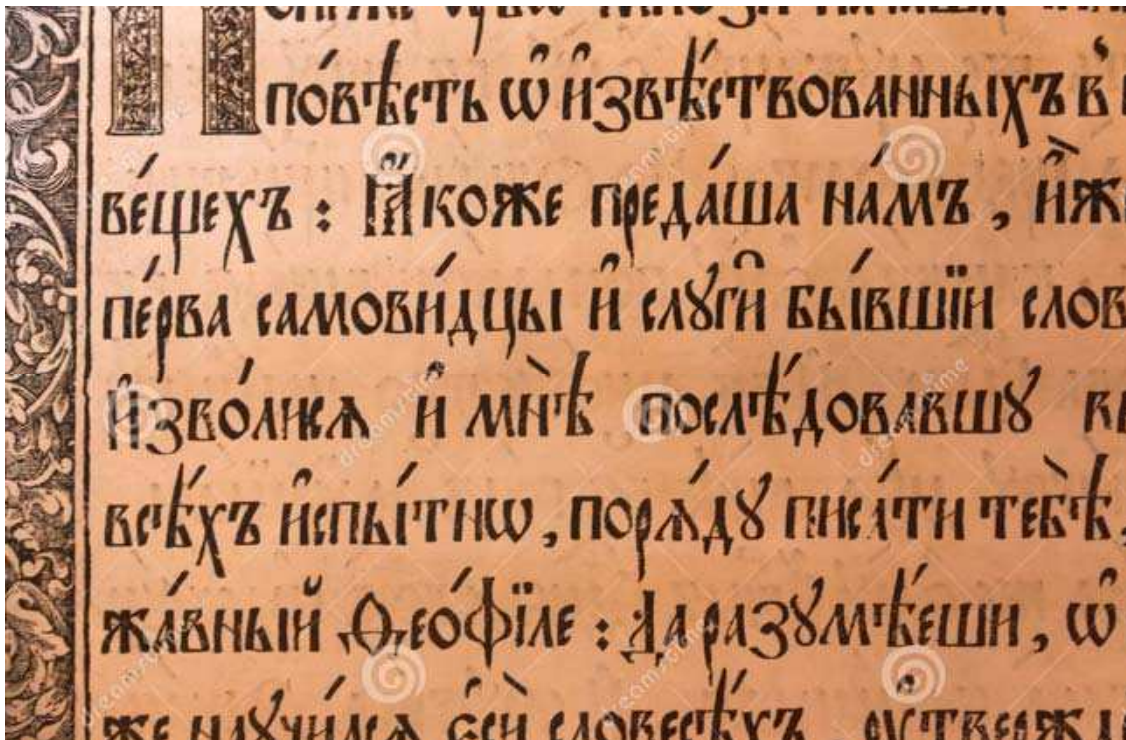 повѣ́сть ѡ҆ и҆звѣ́ствованныхъ в̾
ве́щехъ : Ꙗ҆́коже преда́ша на́мъ , и҆̀ж
пе́рва самови́дцы и҆ слꙋги̑ бы́вшїи слов
И҆зво́лисѧ и҆ мнѣ̀ послѣ́довавшꙋ вы
всѣ́хъ и҆спы́тнѡ , порѧ́дꙋ писа́ти тебѣ̀,
жа́вный Ѳео́фїле : Да разꙋмѣ́еши , ѡ҆
же наꙋчи́лсѧ є҆сѝ словесѣ́хъ